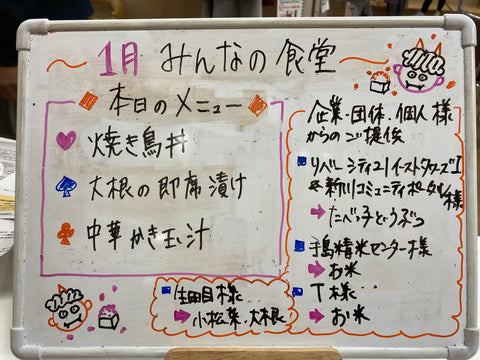 1月 みんなの食堂
本日のメニュー
焼き鳥丼
大根の即席漬け
中華かき玉汁
生田目様
小松菜、大根
企業・団体・個人様
からのご提供
リバーシティ21イーストタワーズII
&新川コミュニティポータル様
たべっ子どうぶつ
手島精米センター様
お米
T様
お米